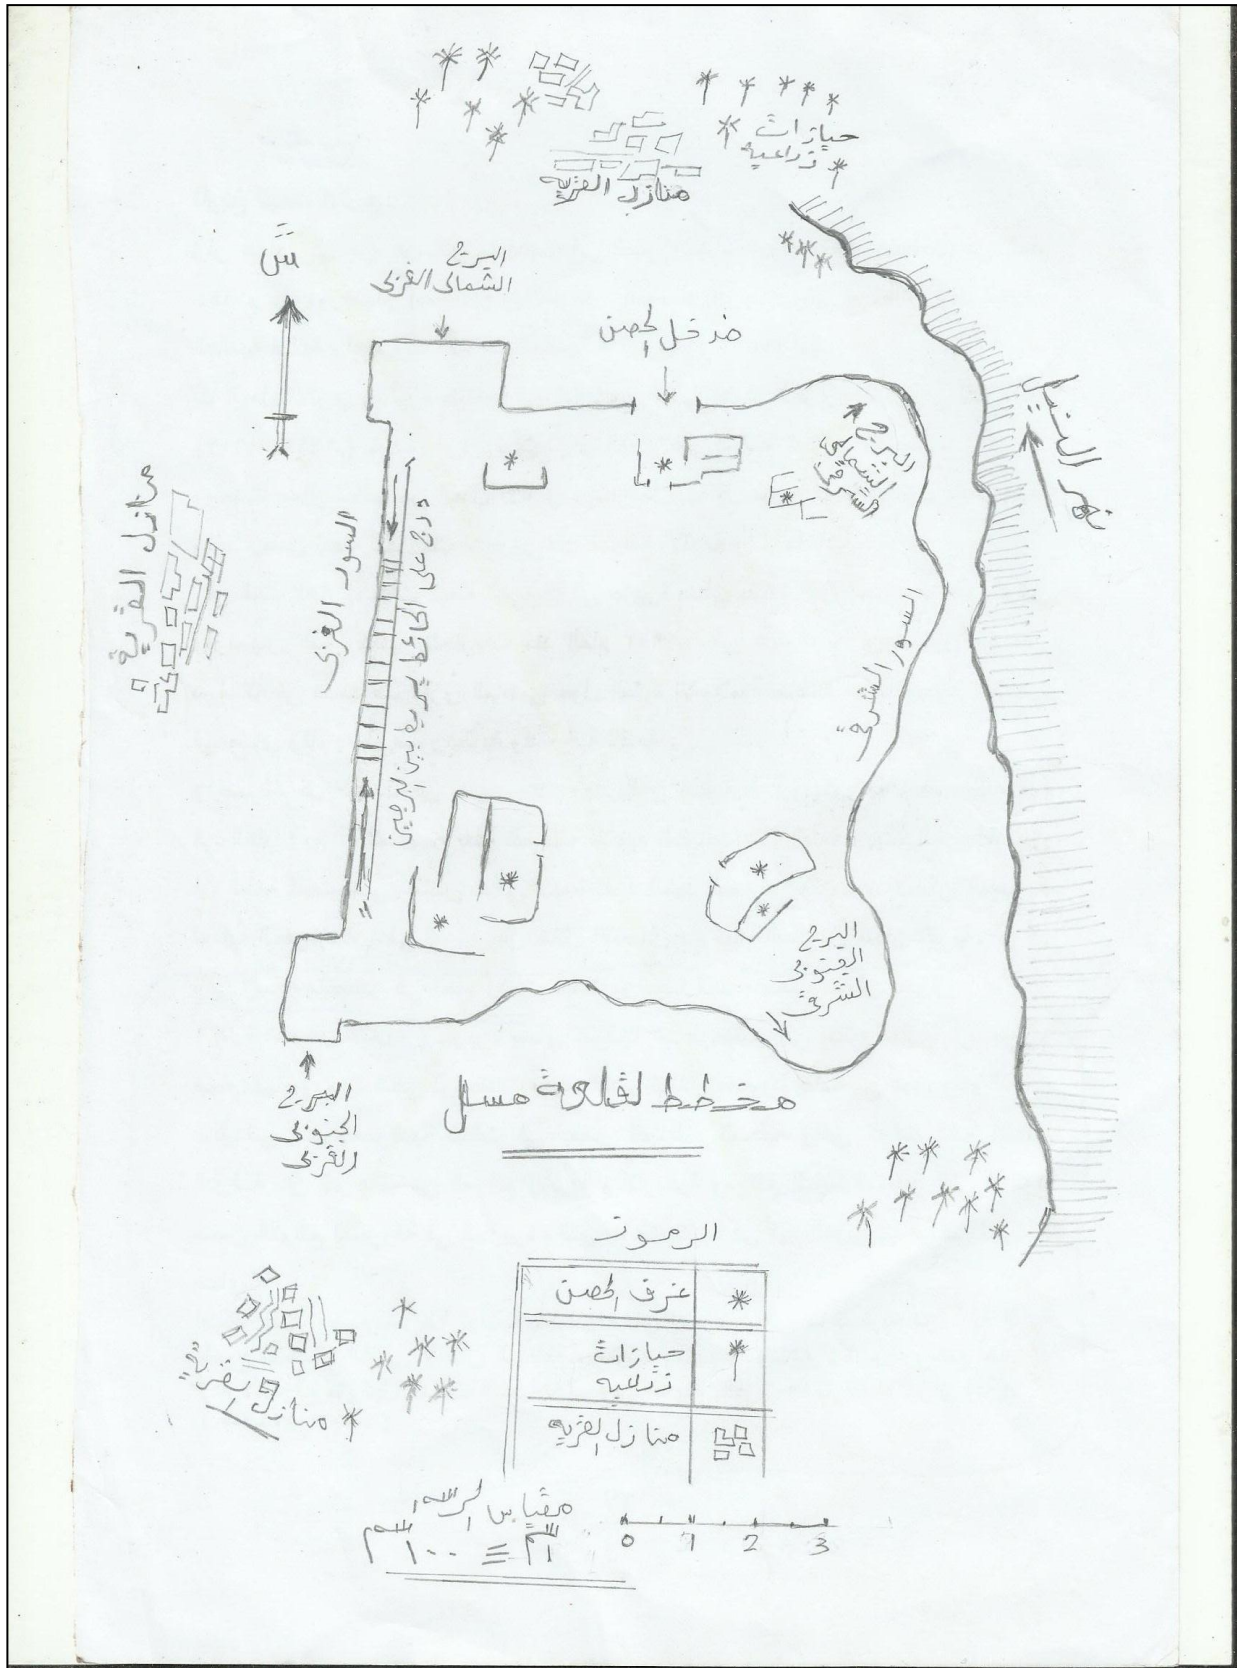 حيازات
زراعيه
منازل القريه
شَ
البرج
الشمالى الغربى
مدخل الحصن
نهر النيل
البرج
الشمالى
الشرقى
منازل القرية
السور الغربى
درج على الحائط يربط بين البرجين
السور الشرقى
البرج
الجنوبى
الشرقى
البرج
الجنوبى
الغربى
مخطط لقلعة مسل
الرموز
غرف الحصن
حيازات
زراعيه
منازل القريه
منازل القرية
مقياس الرسم
0 1 2 3